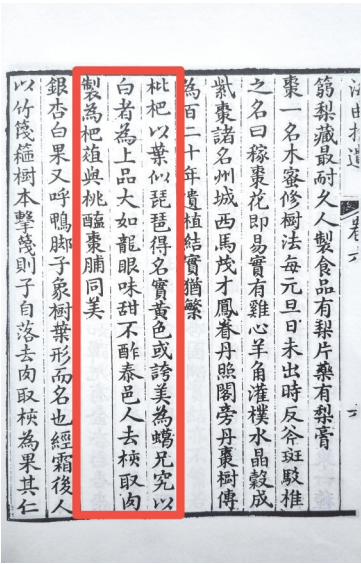 拾遺 卷
梨藏最耐久人製食品有梨片藥有梨膏
棗一名木蜜修樹法每元旦日未出時反斧斑駁椎
之名曰稼棗花即易實有雞心羊角灌樸水晶穀成
紫棗諸名州城西馬茂才鳳眷丹照閣旁丹棗樹傳
為百二十年遺植結實猶繁
枇杷以葉似琵琶得名實黃色或誇美為蠟兄究以
白者為上品大如龍眼味甜不酢泰邑人去核取肉
製為杷菹與桃醢棗脯同美
銀杏白果又呼鴨脚子象樹葉形而名也經霜後人
以竹篾箍樹本擊篾則子自落去肉取核為果其仁